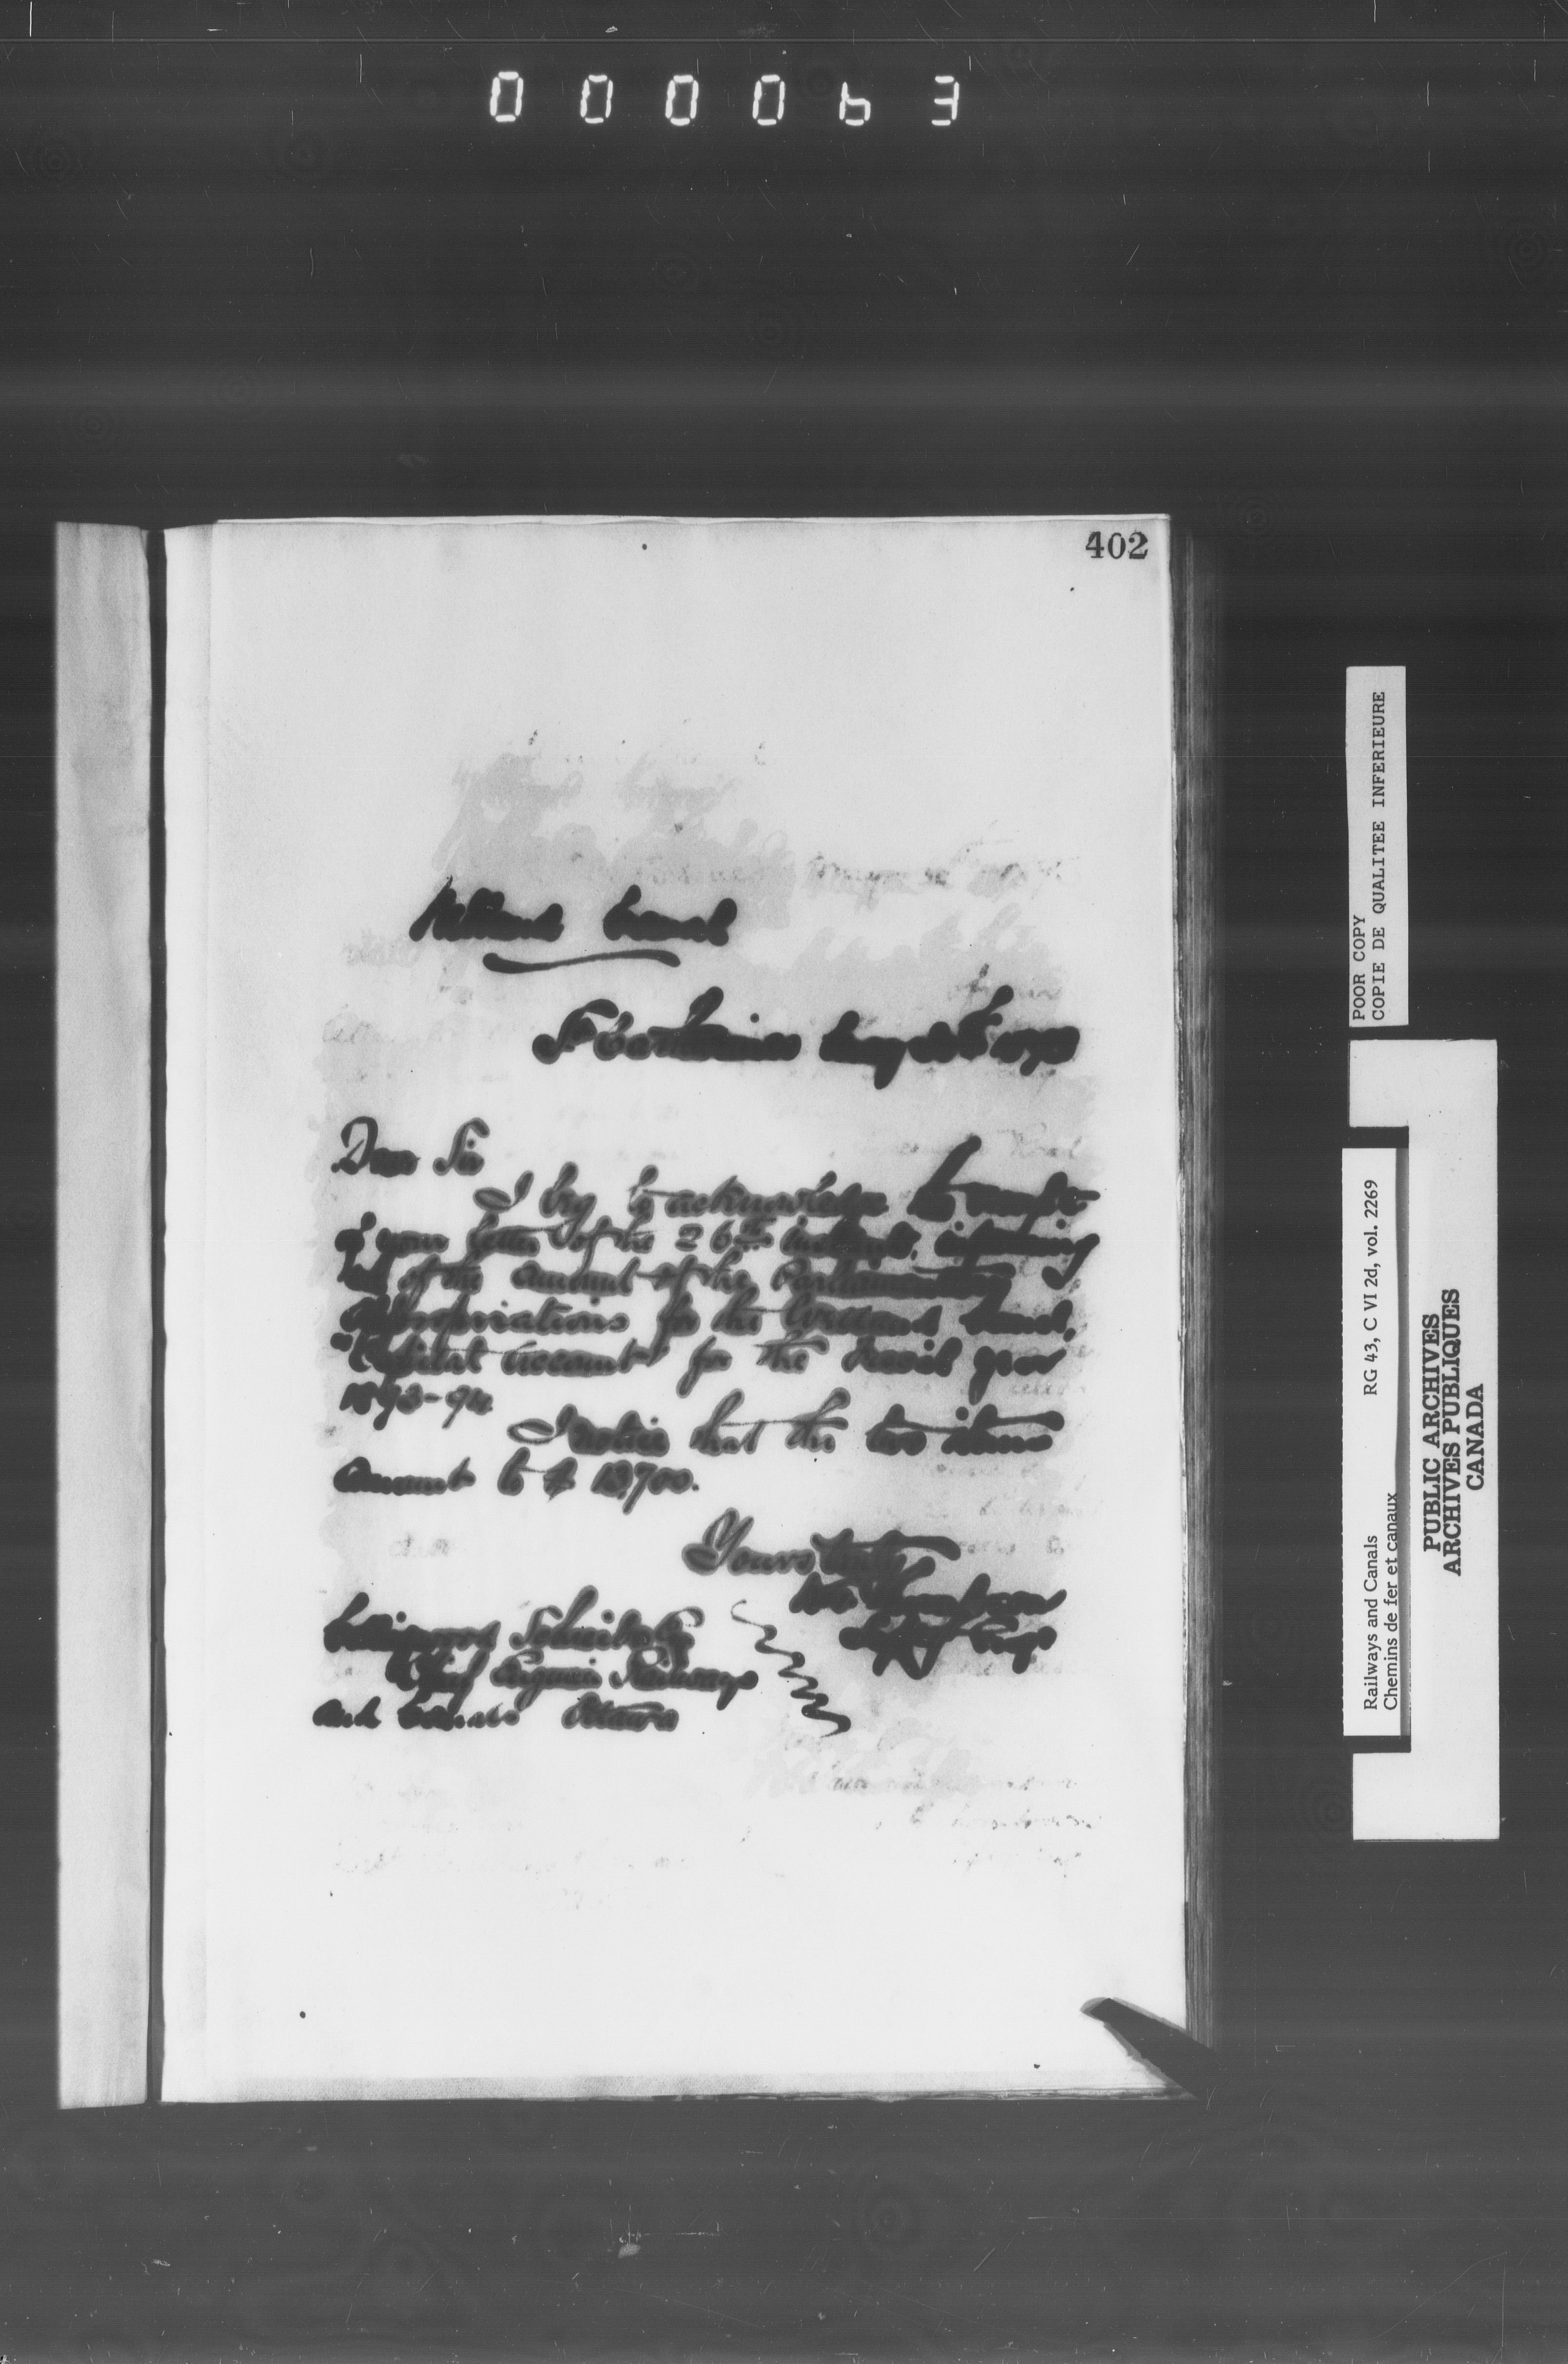 402
Welland Canal
St Catharines Aug 1893
Dear Sir
I beg to acknowledge the receipt
of your letter of the 26th instant, informing
me of the amount of the Parliamentary
appropriations for the Welland Canal,
"Capital account" for the fiscal year
1893-94.
I notice that the two items
amount to $ 13,700.
Yours truly
Thompson
Supg Engr
Collingwood Schreiber Esq
Chief Engineer Railways
and Canals Ottawa
POOR COPY
COPIE DE QUALITEE INFERIEURE
Railways and Canals RG 43, C VI 2d, vol. 2269
Chemins de fer et canaux
PUBLIC ARCHIVES
ARCHIVES PUBLIQUES
CANADA